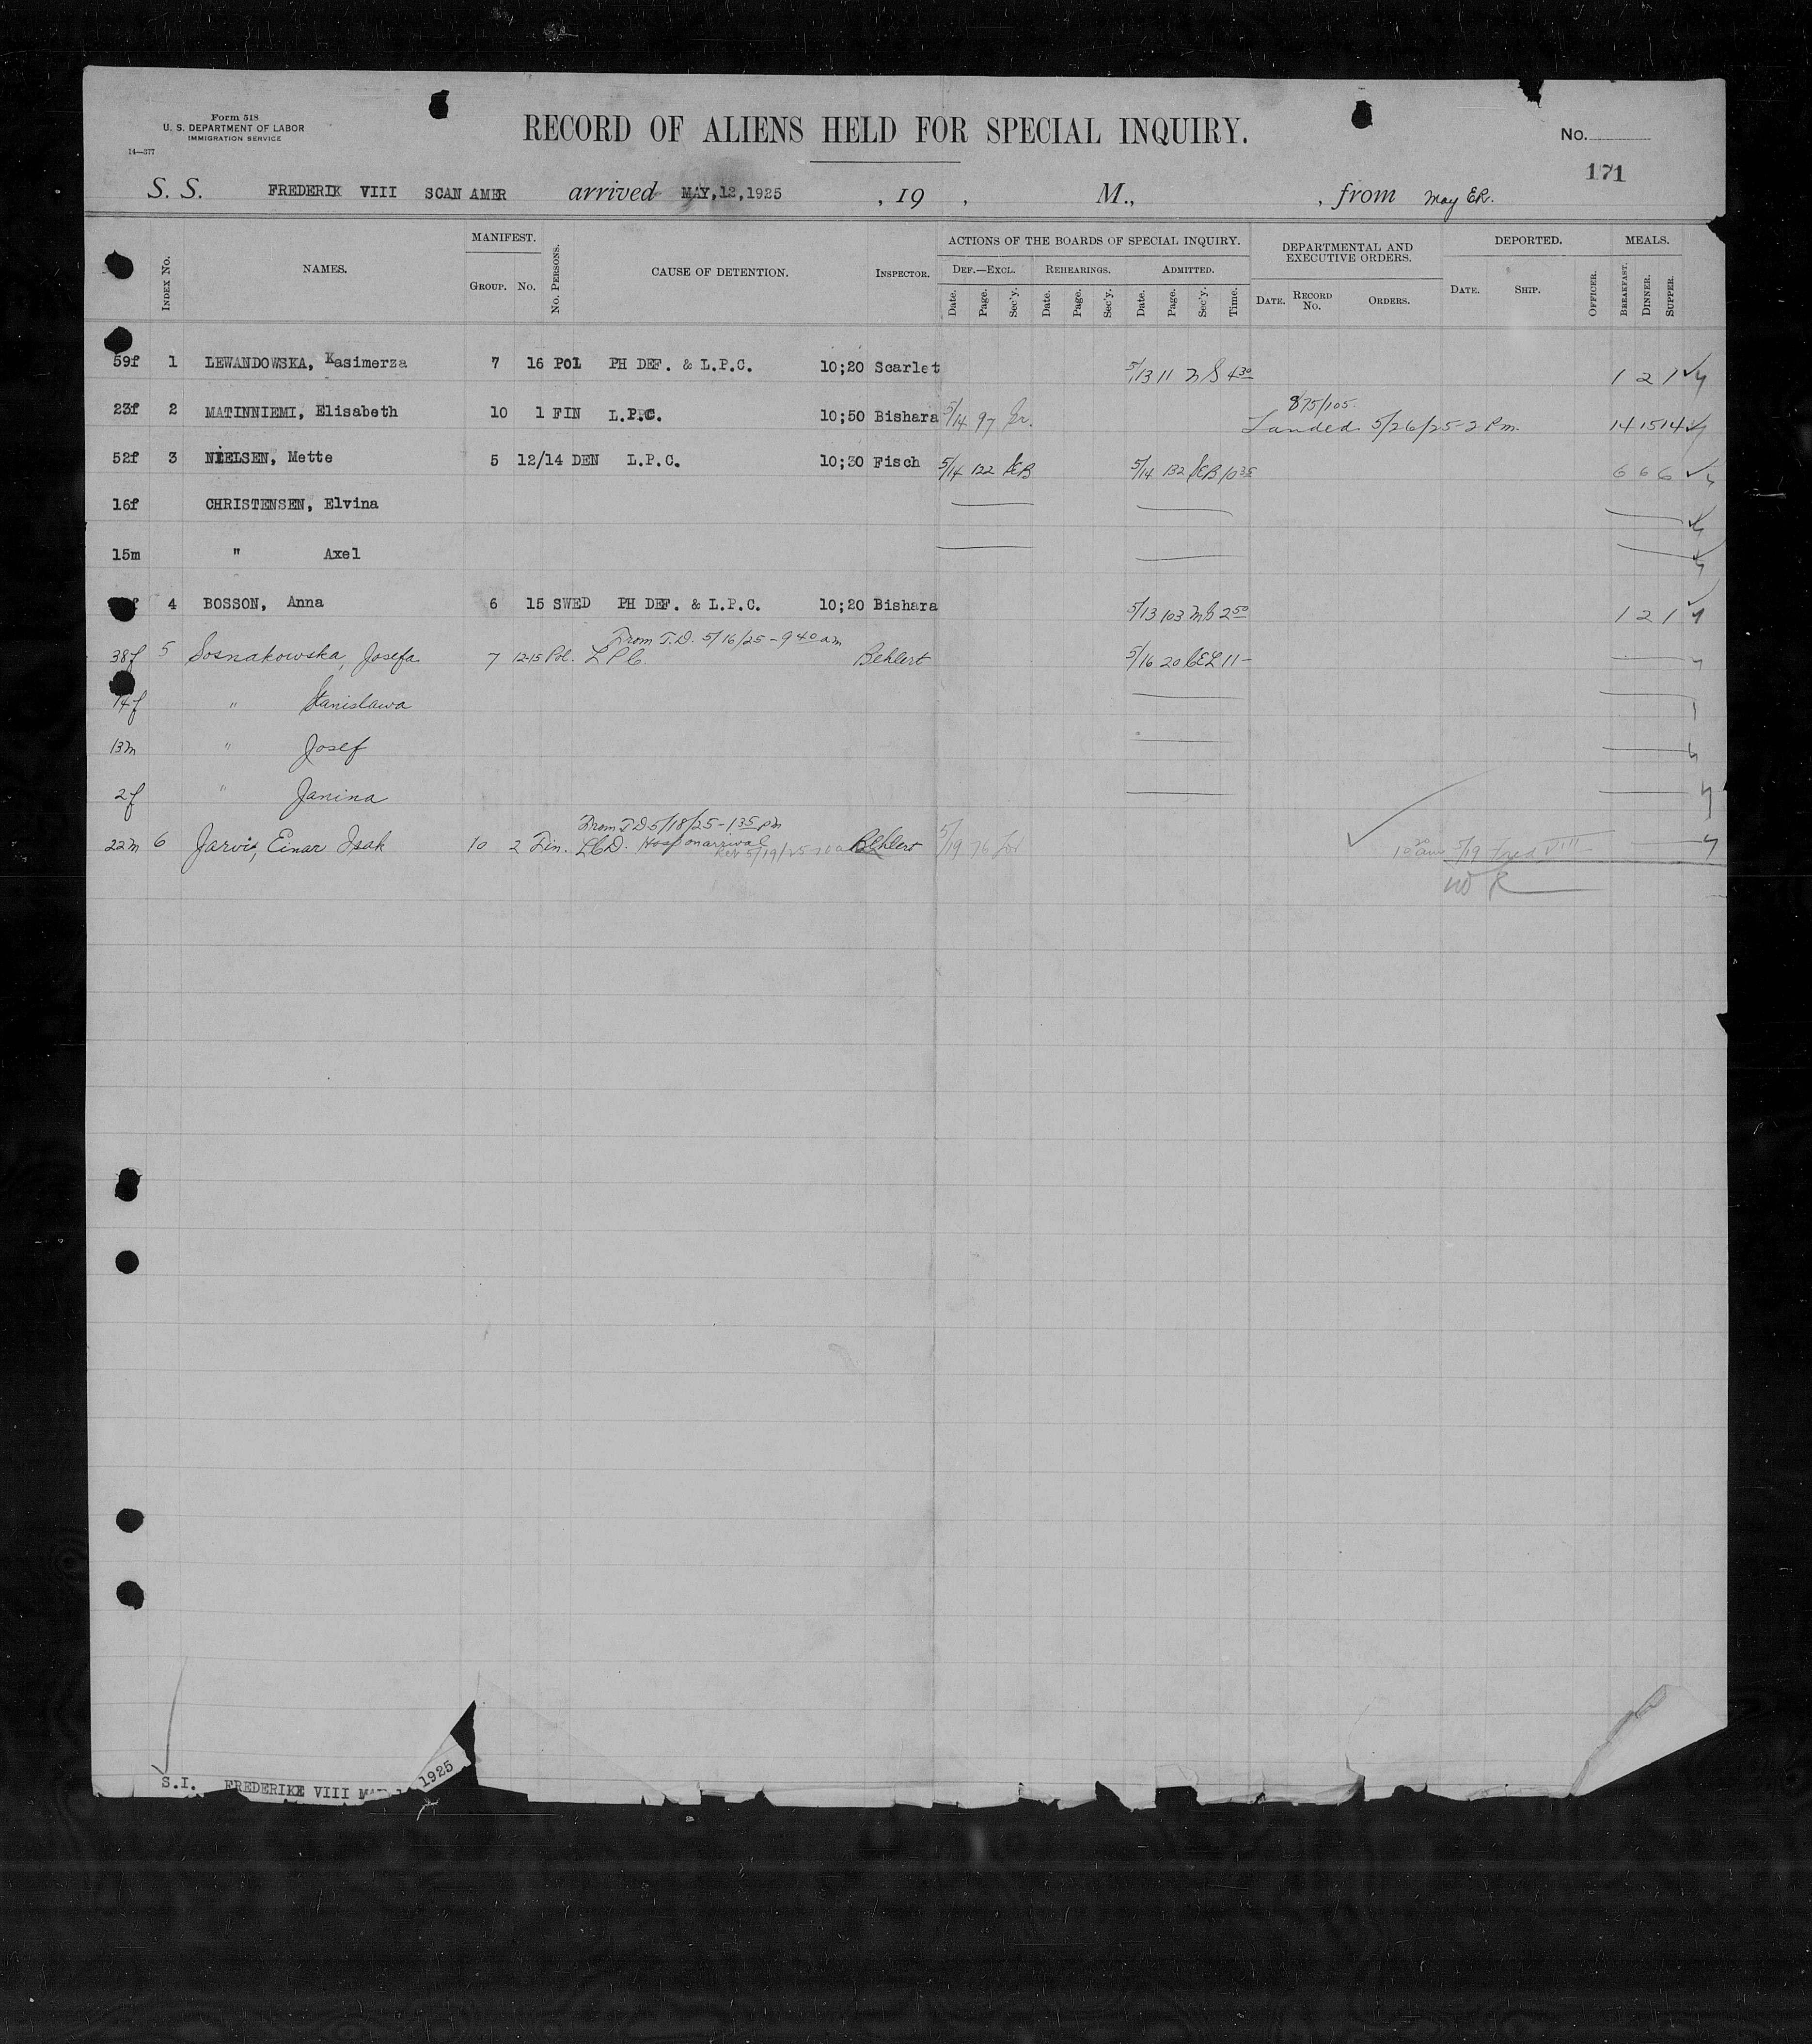 Form 518
U. S. DEPARTMENT OF LABOR
IMMIGRATION SERVICE
14—377
RECORD OF ALIENS HELD FOR SPECIAL INQUIRY.
No.
171
S. S. FREDERIK VIII SCAN AMER arrived MAY,12,1925 , 19 , M., , from May ER.
INDEX No. NAMES. MANIFEST. GROUP. No. No. PERSONS. CAUSE OF DETENTION. INSPECTOR. ACTIONS OF THE BOARDS OF SPECIAL INQUIRY. DEPARTMENTAL AND EXECUTIVE ORDERS. DEPORTED. MEALS.
DEF.—EXCL. REHEARINGS. ADMITTED.
Date. Page. Sec'y. Date. Page. Sec'y. Date. Page. Sec'y. Time. DATE. RECORD No. ORDERS. DATE. SHIP. OFFICER. BREAKFAST. DINNER. SUPPER.
59f 1 LEWANDOWSKA, Kasimerza 7 16 POL PH DEF. & L.P.C. 10;20 Scarlet 5/13 11 4 30 1 2 1
875/105
23f 2 MATINNIEMI, Elisabeth 10 1 FIN L.P.C. 10;50 Bishara 5/14 97 Landed 5/26/25-2 Pm. 14 15 14
52f 3 NIELSEN, Mette 5 12/14 DEN L.P.C. 10;30 Fisch 5/14 122 5/14 132 10 35 6 6 6
16f CHRISTENSEN, Elvina
15m " Axel
f 4 BOSSON, Anna 6 15 SWED PH DEF. & L.P.C. 10;20 Bishara 5/13 103 2 50 1 2 1
From T.D. 5/16/25 - 9 40 am
38f 5 Sosnakowska, Josefa 7 12-15 Pol. L P C. Behlert 5/16 20 CEL 11 -
14f " Stanislawa
13m " Josef
2f " Janina
From T D 5/18/25 - 1 35 pm
22m 6 Jarvis, Einar Isak 10 2 Fin. LCD. Hosp on arrival Behlert 5/19 76 10 20 am 5/19 Fred VIII
S.I. FREDERIKE VIII 1925